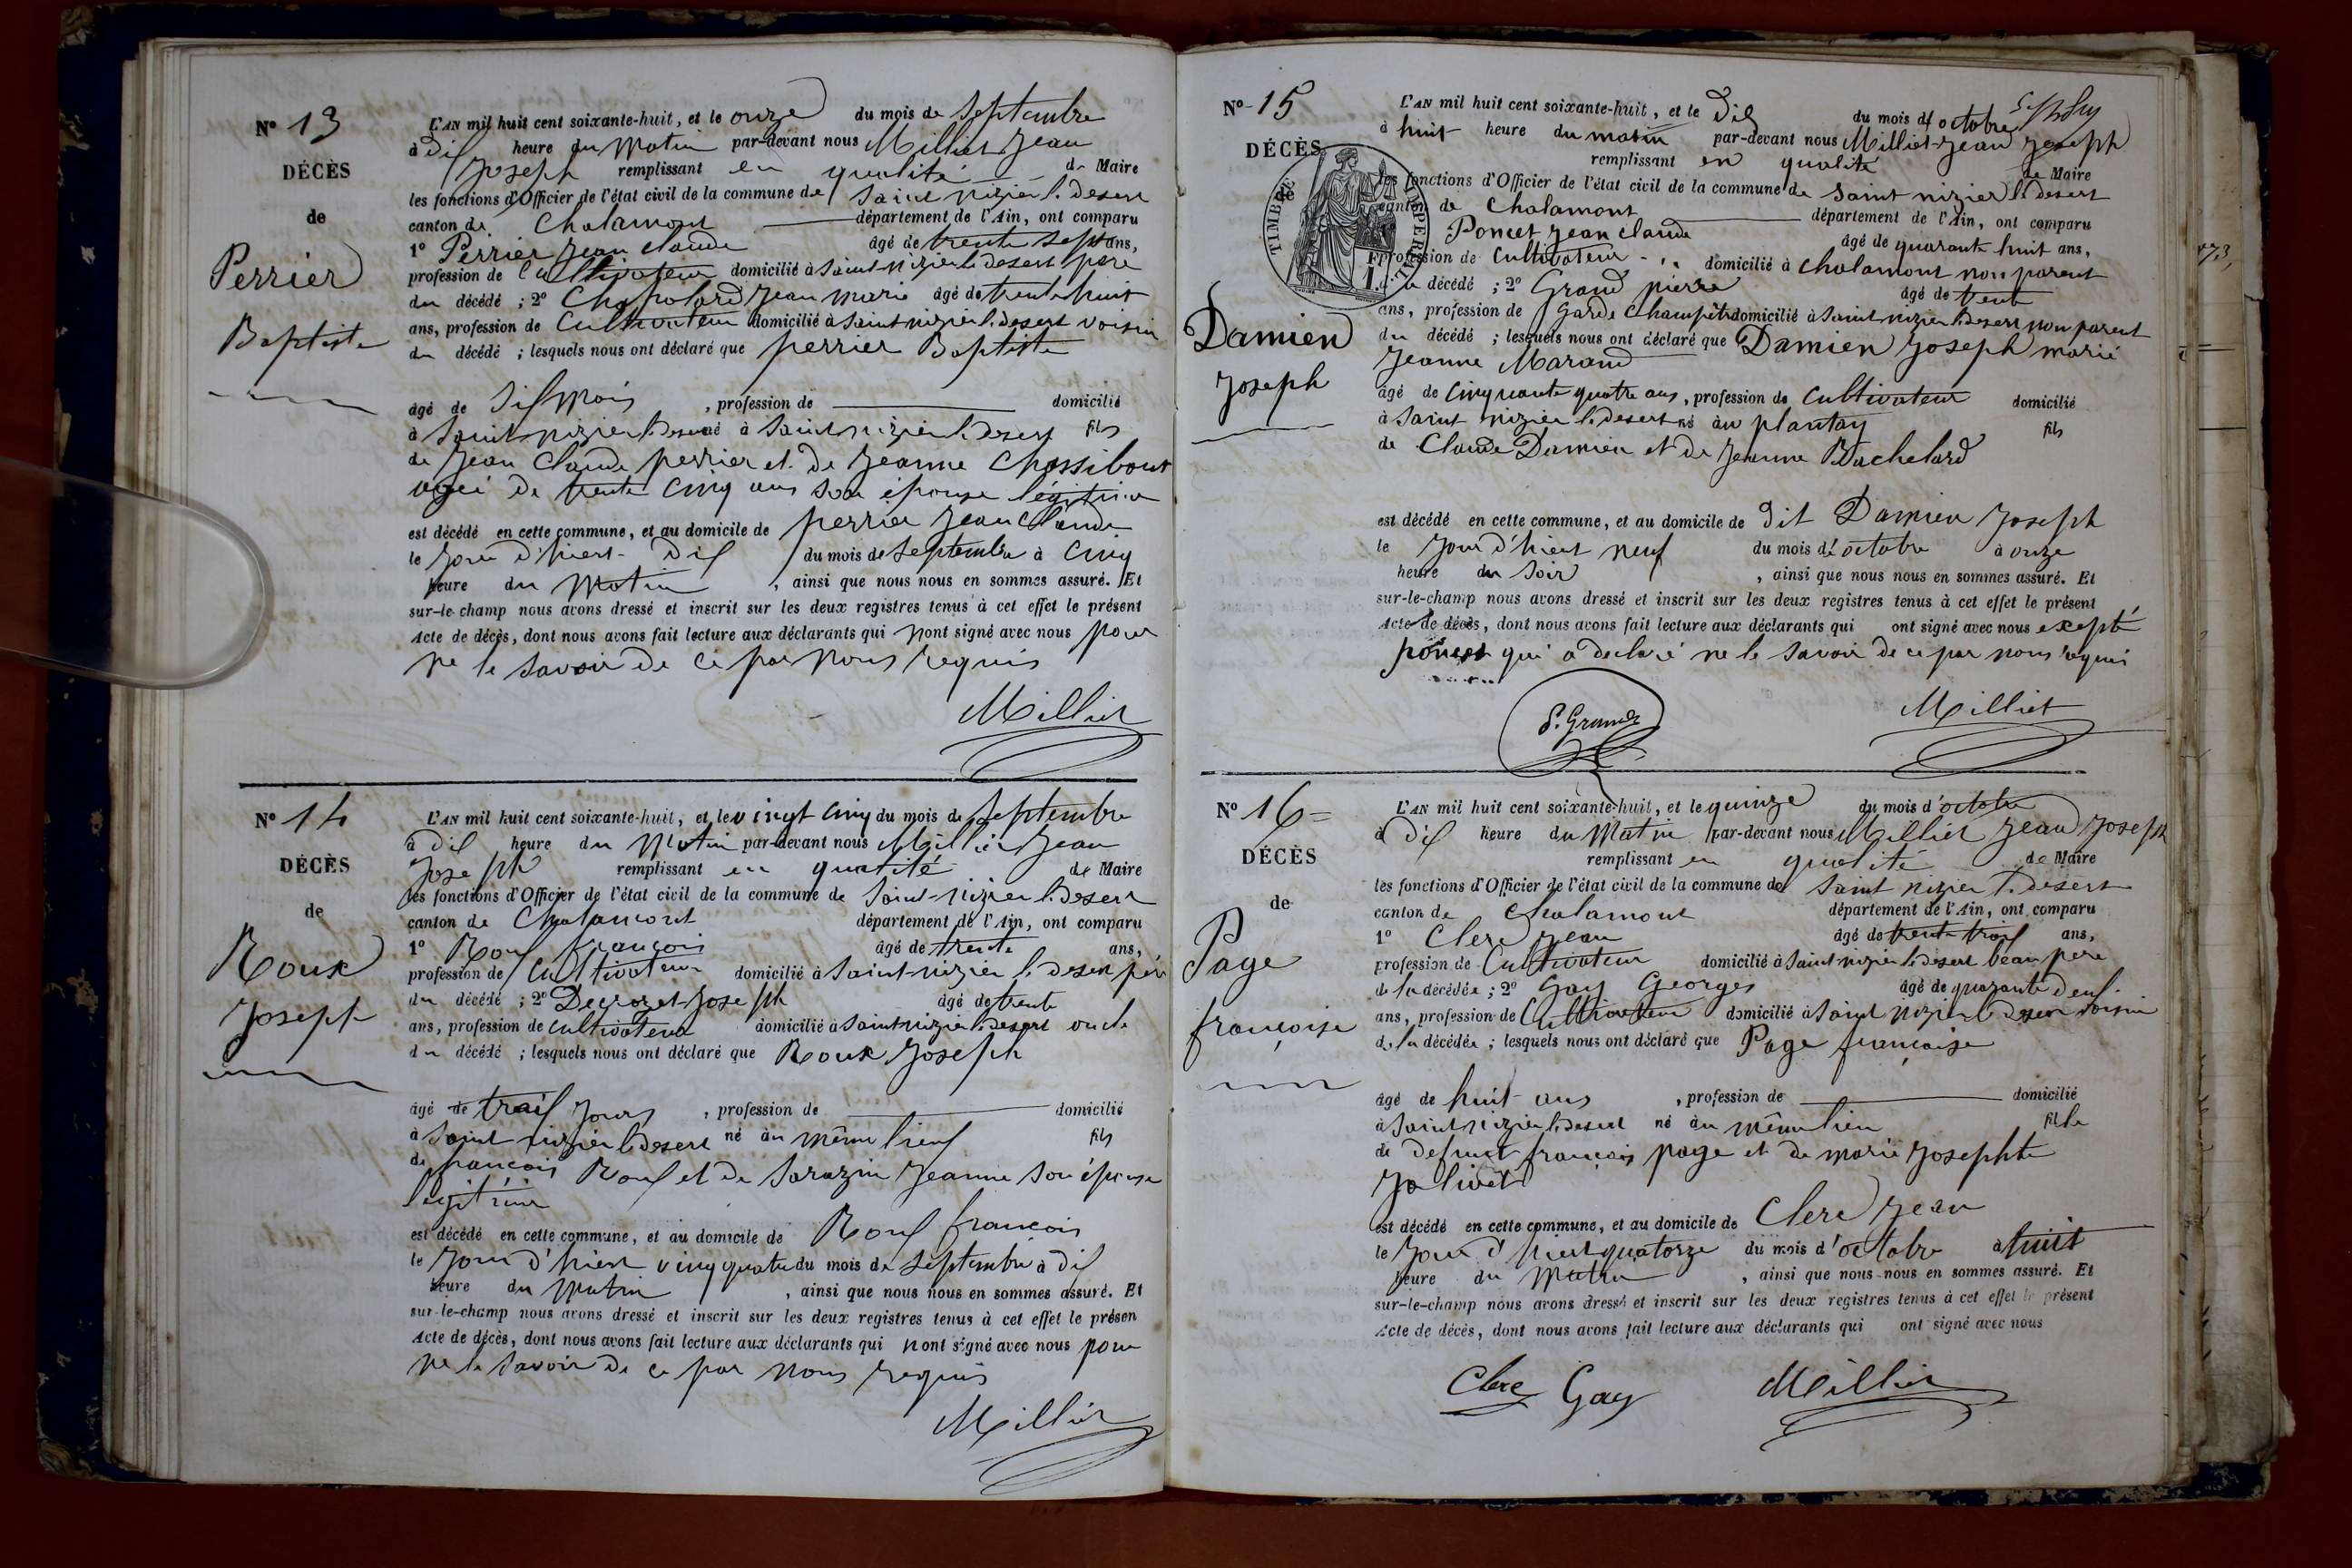 N° 13
DÉCÈS
de
Perrier
Baptiste
L'AN mil huit cent soixante-huit, et le onze du mois de Septembre
à dix heure du Matin par-devant nous Milliet Jean
Joseph remplissant en qualité de Maire
les fonctions d'Officier de l'état civil de la commune de Saint nizier le desert
canton de Chalamont département de l'Ain, ont comparu
1° Perrier Jean Claude âgé de trente sept ans,
profession de Cultivateur domicilié à Saint-nizier le desert père
du décédé ; 2° Chapolard Jean marie âgé de trente huit
ans, profession de Cultivateur domicilié à Saint nizier le desert voisin
du décédé ; lesquels nous ont déclaré que perrier Baptiste
âgé de Six Mois , profession de domicilié
à Saint nizier le desert né à Saint nizier le desert fils
de Jean Claude perrier et de Jeanne Chassibout
agée de trente cinq ans son épouse légitime
est décédé en cette commune, et au domicile de perrier Jean Claude
le Jour d'hiert dix du mois de Septembre à Cinq
heure du Matin , ainsi que nous nous en sommes assuré. Et
sur-le-champ nous avons dressé et inscrit sur les deux registres tenus à cet effet le présent
Acte de décès, dont nous avons fait lecture aux déclarants qui n'ont signé avec nous pour
ne le savoir de ce par nous requis
Milliet
N° 14
DÉCÈS
de
Roux
Joseph
L'AN mil huit cent soixante-huit, et le vingt cinq du mois de Septembre
à dix heure du Matin par-devant nous Milliet Jean
Joseph remplissant en qualité de Maire
les fonctions d'Officier de l'état civil de la commune de Saint-nizier le desert
canton de Chalamont département de l'Ain, ont comparu
1° Roux françois âgé de trente ans,
profession de Cultivateur domicilié à Saint-nizier le desert père
du décédé ; 2° Decrozet Joseph âgé de trente
ans, profession de Cultivateur domicilié à Saint nizier le desert oncle
du décédé ; lesquels nous ont déclaré que Roux Joseph
âgé de trois Jours , profession de domicilié
à Saint nizier le desert né au même lieux fils
de françois Roux et de Sarazin Jeanne son épouse
légitime
est décédé en cette commune, et au domicile de Roux françois
le Jour d'hiert vingt quatre du mois de Septembre à dix
heure du Matin , ainsi que nous nous en sommes assuré. Et
sur-le-champ nous avons dressé et inscrit sur les deux registres tenus à cet effet le présen
Acte de décès, dont nous avons fait lecture aux déclarants qui n'ont signé avec nous pour
ne le savoir de ce par nous requis
Milliet
N° 15
DÉCÈS
de
TIMBRE IMPERIAL
Damien
Joseph
L'AN mil huit cent soixante-huit, et le Dix du mois d'octobre
à huit heure du matin par-devant nous Milliet Jean Joseph
remplissant en qualité de Maire
les fonctions d'Officier de l'état civil de la commune de Saint nizier le desert
canton de Chalamont département de l'Ain, ont comparu
Poncet Jean claude âgé de quarante huit ans,
profession de Cultivateur domicilié à Chalamont non parent
du décédé ; 2° Grand pierre âgé de trente
ans, profession de Garde Champêtre domicilié à Saint nizier le desert non parent
du décédé ; lesquels nous ont déclaré que Damien Joseph marié
Jeanne Marand
âgé de Cinquante quatre ans, profession de Cultivateur domicilié
à Saint nizier le desert né au plantay fils
de Claude Damien et de Jeanne Bachelard
est décédé en cette commune, et au domicile de dit Damien Joseph
le Jour d'hiert neuf du mois d'octobre à onze
heure du Soir , ainsi que nous nous en sommes assuré. Et
sur-le-champ nous avons dressé et inscrit sur les deux registres tenus à cet effet le présent
Acte de décès, dont nous avons fait lecture aux déclarants qui ont signé avec nous excepté
poncet qui a declaré ne le savoir de ce par nous requi
P. Grand
Milliet
N° 16
DÉCÈS
de
Page
françoise
L'AN mil huit cent soixante-huit, et le quinze du mois d'octobre
à dix heure du Matin par-devant nous Milliet Jean Joseph
remplissant en qualité de Maire
les fonctions d'Officier de l'état civil de la commune de Saint nizier le desert
canton de Chalamont département de l'Ain, ont comparu
1° Clerc Jean âgé de trente trois ans,
profession de Cultivateur domicilié à Saint nizier le desert beau père
de la décédée ; 2° Gay Georges âgé de quarante deux
ans, profession de Cultivateur domicilié à Saint nizier le desert voisin
de la décédée ; lesquels nous ont déclaré que Page françoise
âgé de huit ans , profession de domicilié
à Saint nizier le desert né au même lieu fille
de defunt françois page et de marie Josephte
Jolivet
est décédé en cette commune, et au domicile de Clerc Jean
le Jour d'hiert quatorze du mois d'octobre à huit
heure du Matin , ainsi que nous nous en sommes assuré. Et
sur-le-champ nous avons dressé et inscrit sur les deux registres tenus à cet effet le présent
Acte de décès, dont nous avons fait lecture aux déclarants qui ont signé avec nous
Clerc Gay Milliet